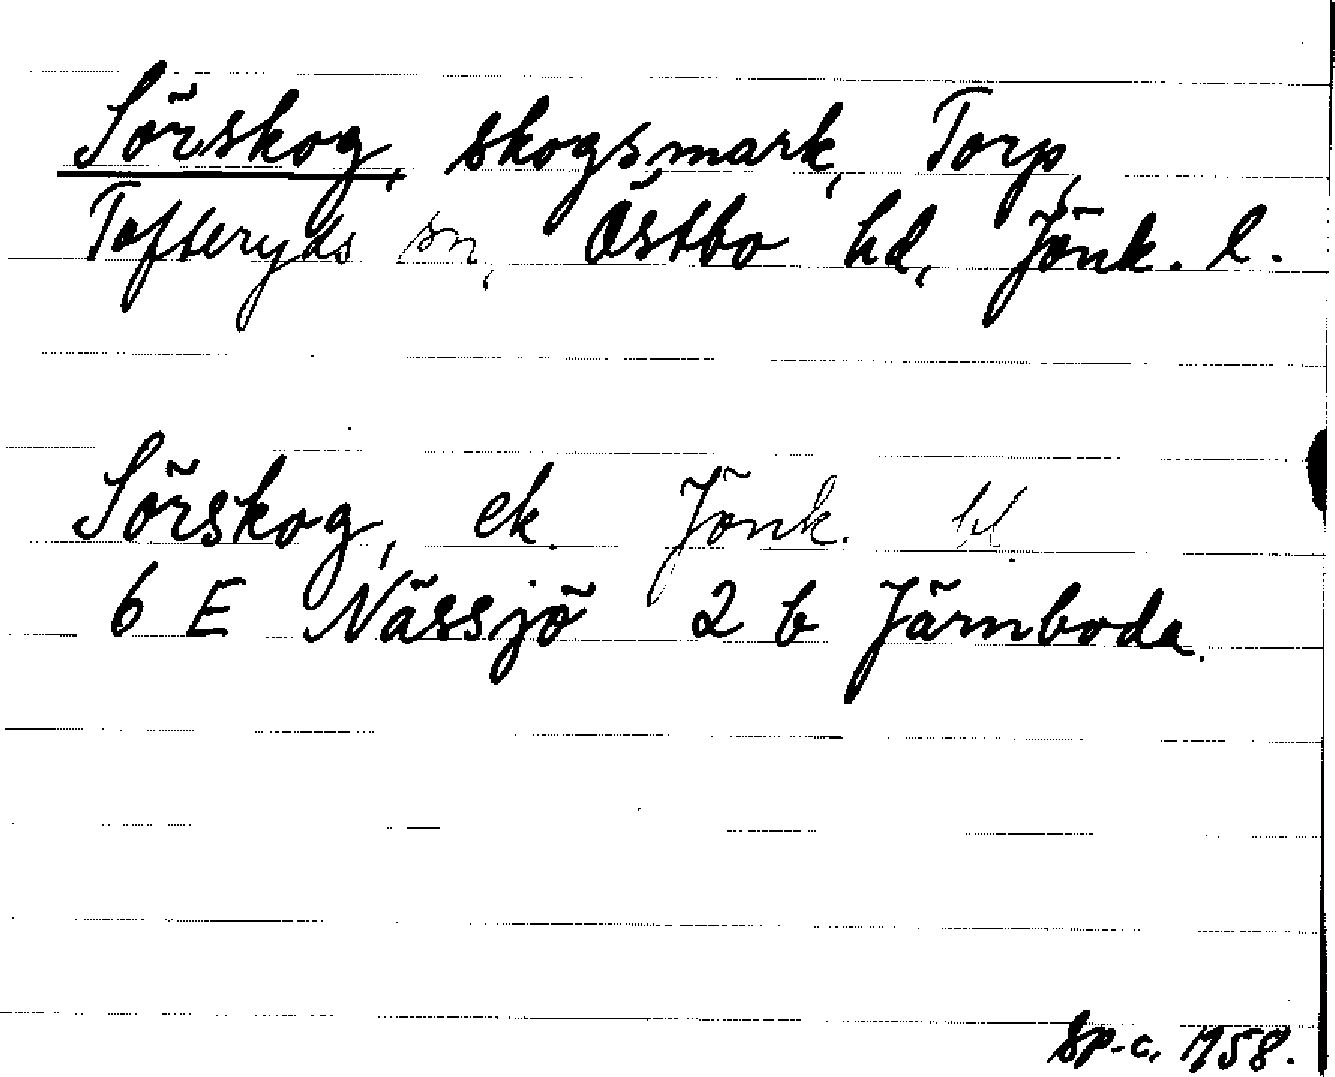 Sörskog, skogsmark, Torp,
Tofteryds sn, Östbo hd, Jönk. l.
Sörskog, ek. Jönk. bl
6 E Nässjö 2 b Järnboda.
Sp-c, 1958.